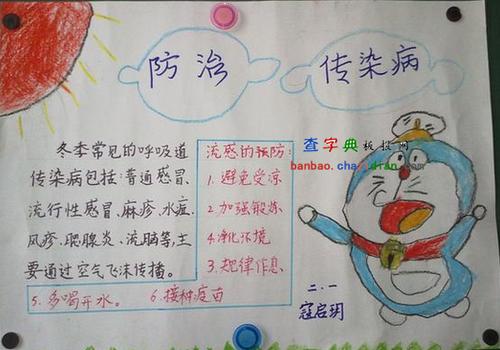 防治 传染病
查字典板报网
banbao.chazidian.com
冬季常见的呼吸道
传染病包括:普通感冒、
流行性感冒、麻疹、水痘、
风疹、腮腺炎、流脑等,主
要通过空气飞沫传播。
流感的预防:
1.避免受凉
2.加强锻炼
4.净化环境
3.规律作息
5.多喝开水。 6.接种疫苗
二.一
寇启玥